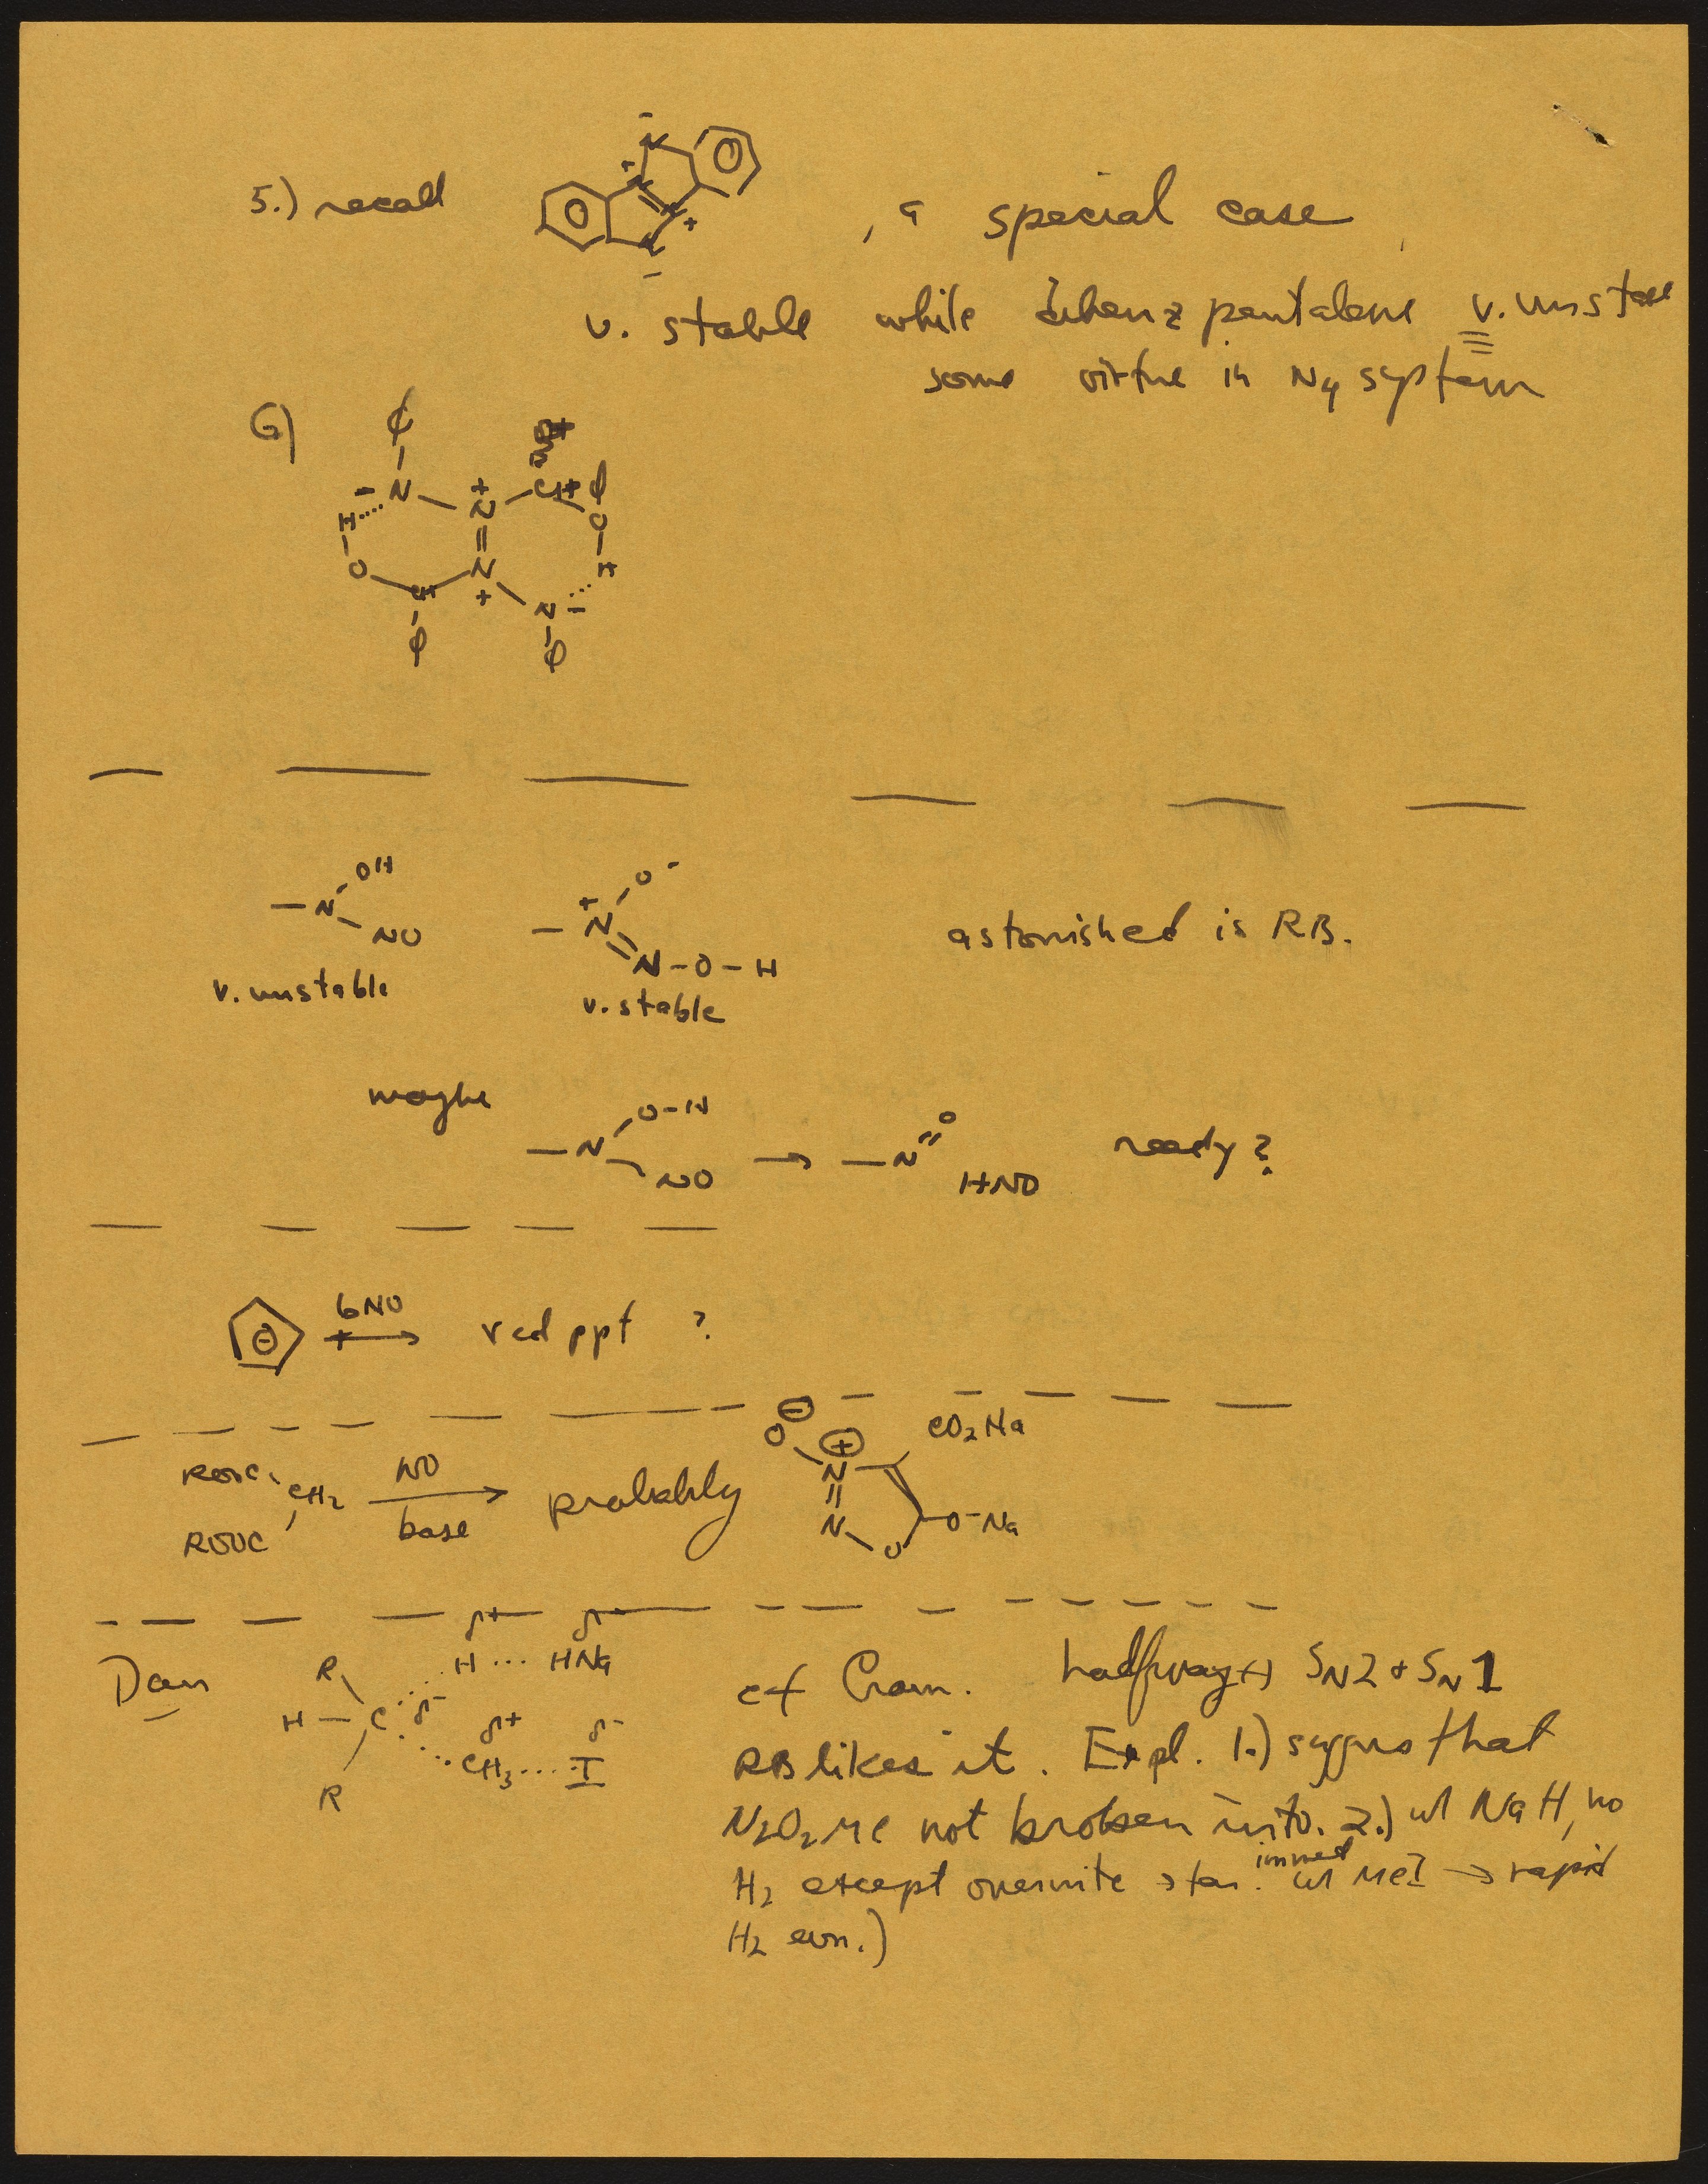 5.) recall
N
-
+
N
N
+
N
-
, a special case
v. stable while dibenzpentalene v. unstable
some virtue in N4 system
6)
ϕ
- N + N CH ϕ
H O
N H
O CH + N -
ϕ ϕ
- - - - - -
OH O-
-N +N
NO N-O-H
v. unstable v. stable
astonished is RB.
maybe
O-H O
-N → -N
NO HNO
ready?
⊖ 6NO → red ppt ?
ROOC CH2 ROOC
NO
base
probably
⊖ O ⊕ N CO2Na
N O O-Na
Dan
δ+ δ-
R H... HNa
H - C δ-
δ+ δ-
CH3... I
R
cf Cram. halfway SN2 + SN1
RB likes it. Expl. 1.) that
N2O2Me not broken into. 2.) w/ NaH, no
H2 except overnite star. w/ MeI immed → rapid
H2 evn.)